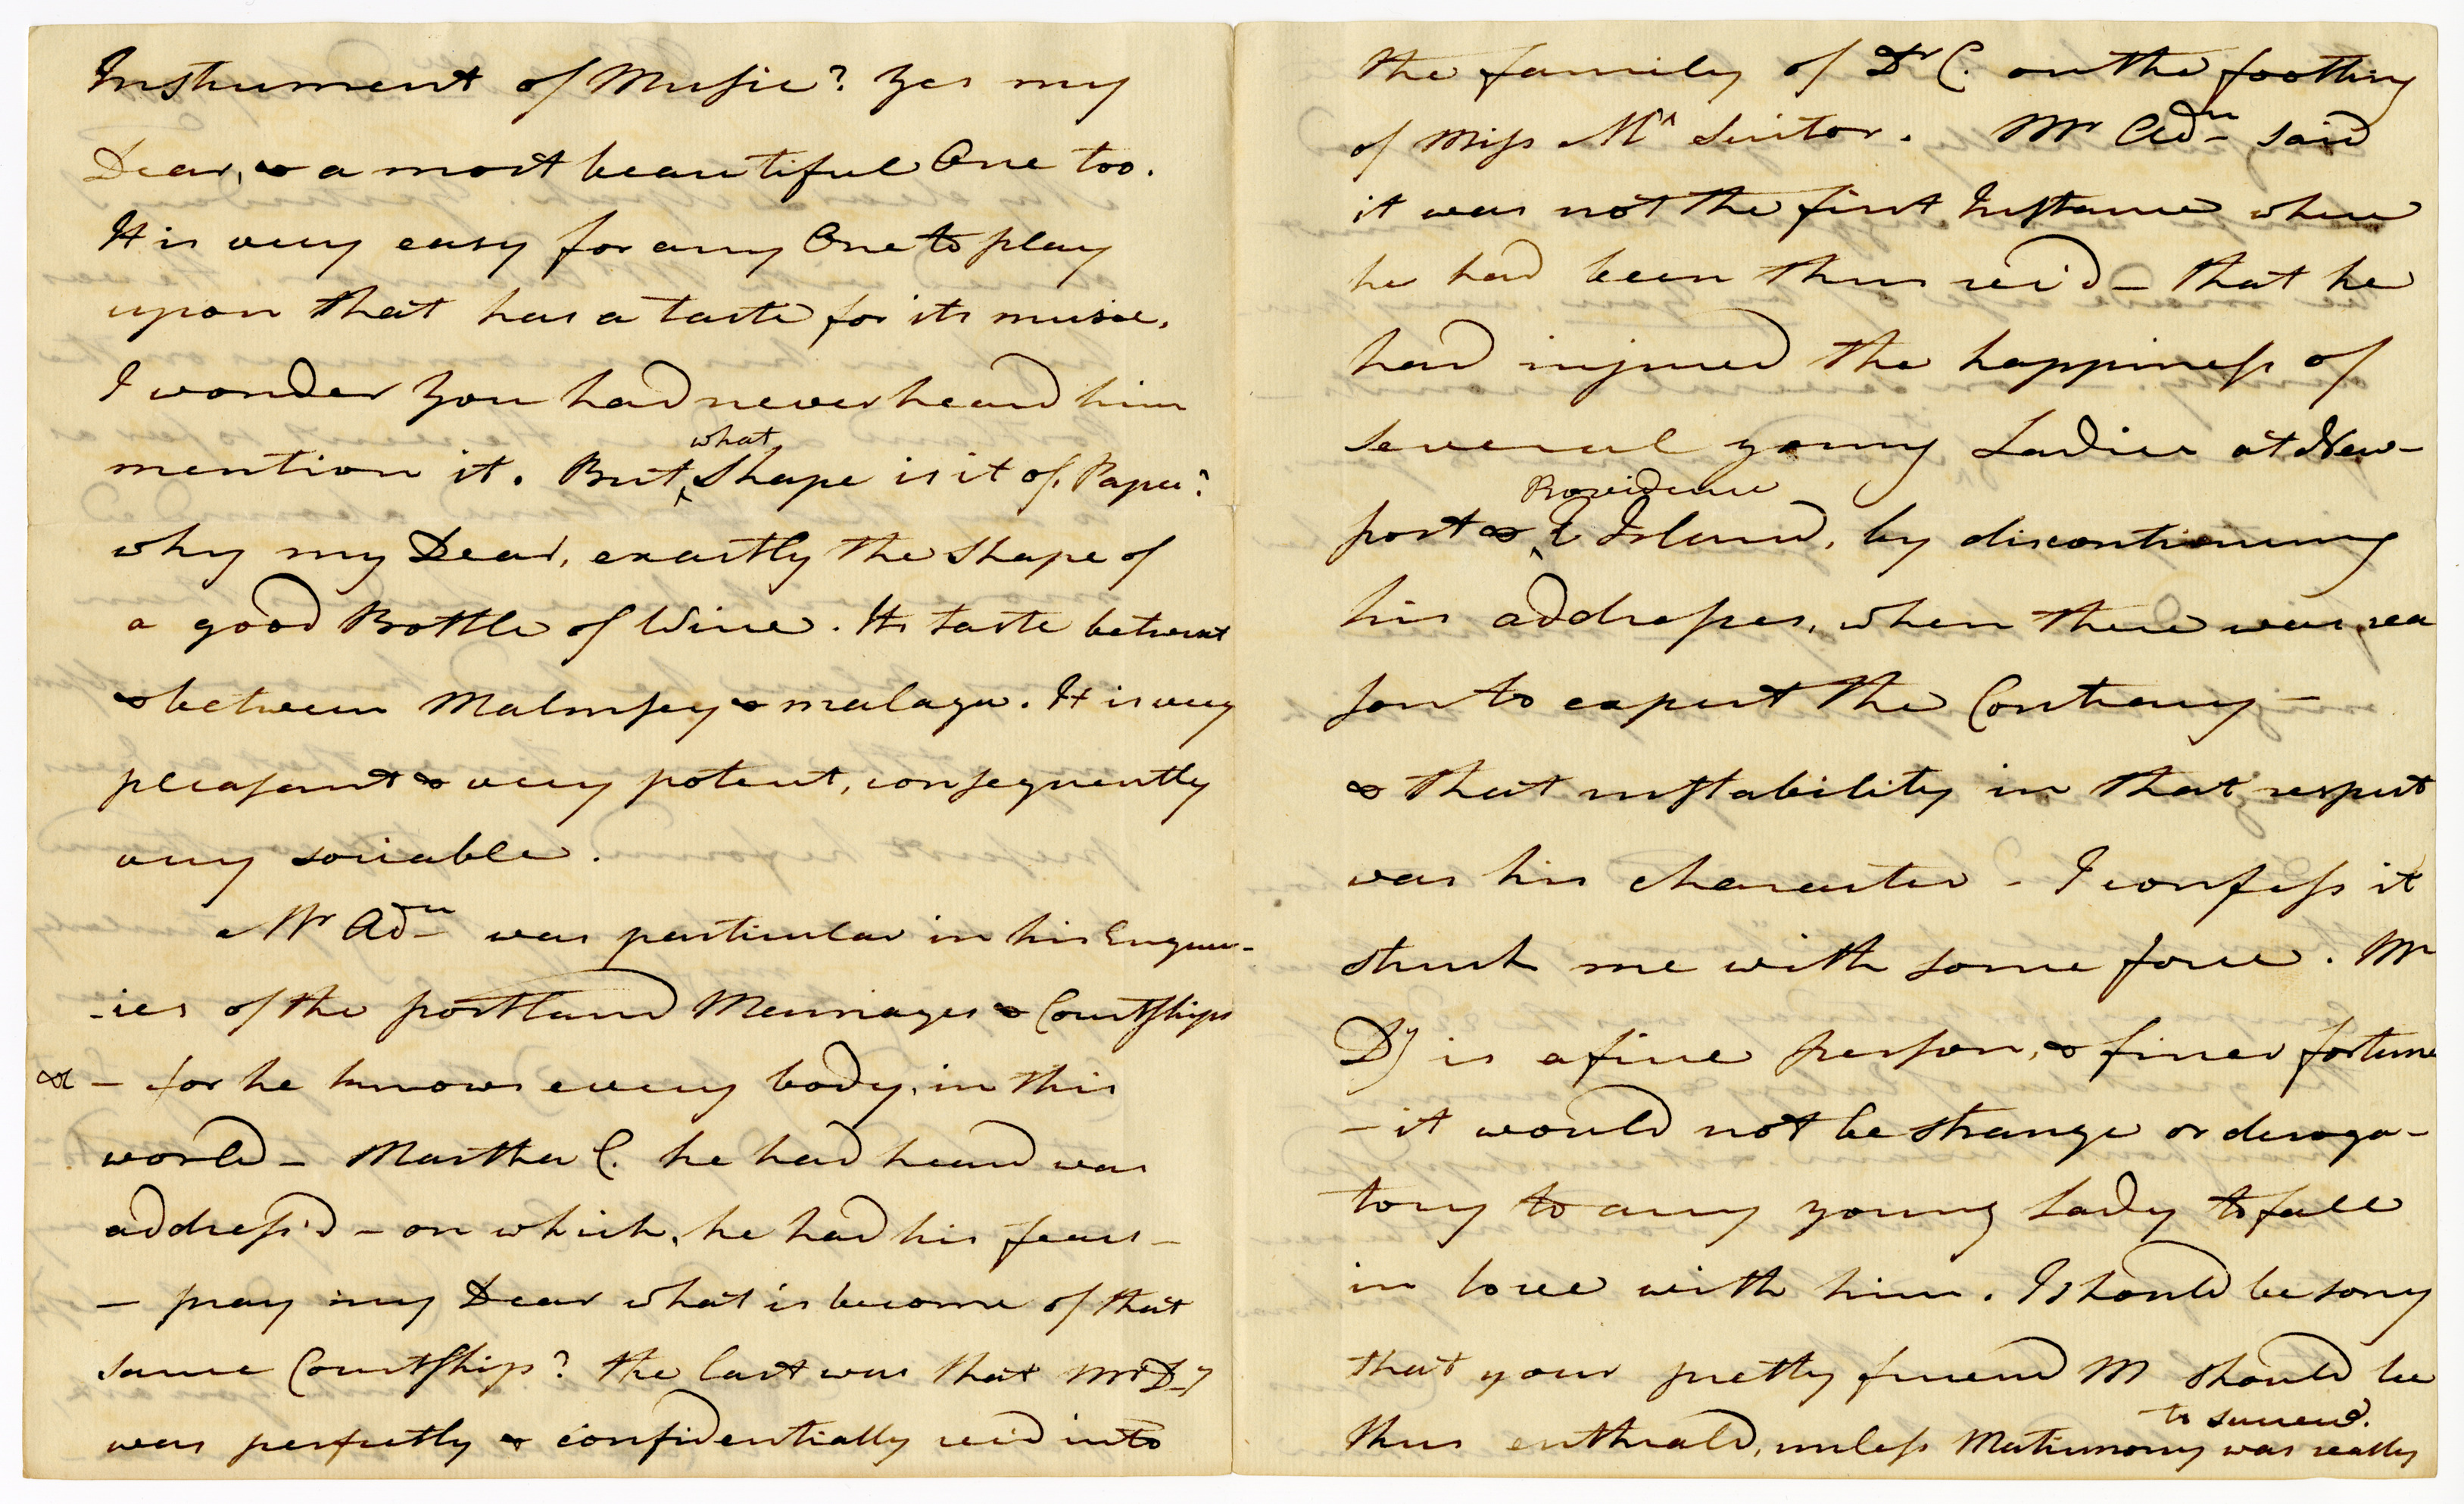 Instrument of Musick? Yes my
Dear, & a most beautiful One too.
It is very easy for any One to play
upon that has a taste for its music.
I wonder you had never heard him
what
mention it. But shape is it of, Papa?
why my Dear, exactly the shape of
a good Bottle of Wine. Its taste betwixt
& between Malmsey & malaga. It is very
pleasant & very potent, consequently
very sociable.
Mr Adn was particular in his Enquir-
-ies of the portland Marriages & Courtships
&c - for he knows every body, in this
world - Martha C. he had heard was
address'd - on which, he had his fears -
- pray my Dear what is become of that
same Courtship? the last was that Mr Dy
was perfectly & confidentially rec'd into
the family of Dr C. on the footing
of Miss M's Suitor. Mr Adn said
it was not the first Instance where
he had been thus rec'd - that he
had injured the happiness of
several young Ladies at New-
Providence
port & Island, by discontinuing
his addresses, when there was rea
son to expect the Contrary -
& that instability in that respect
was his character - I confess it
struck me with some force. Mr
Dy is a fine person, & finer fortune
- it would not be strange or deroga-
tory to any young Lady to fall
in love with him. I should be sorry
that your pretty friend M should be
to succeed.
thus enthrald, unless Matrimony was really